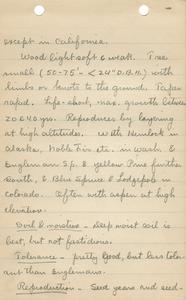 except in California.
Wood light soft & weak. Tree
small (50-75' - <24" D.B.H.) with
limbs or knots to the ground. Taper
rapid. Life-short, max. growth between
20 & 40 yrs. Reproduces by layering
at high altitudes. With Hemlock in
Alaska, Noble Fir etc. in Wash. &
Englemann Sp. & yellow Pine further
south, & Blue Spruce & Lodgepole in
Colorado. Often with aspen at high
elevation.
Soil & moisture - deep moist soil is
best, but not fastidious.
Tolerance - pretty good, but less toler-
ant than Englemans.
Reproduction - Seed years and seed-